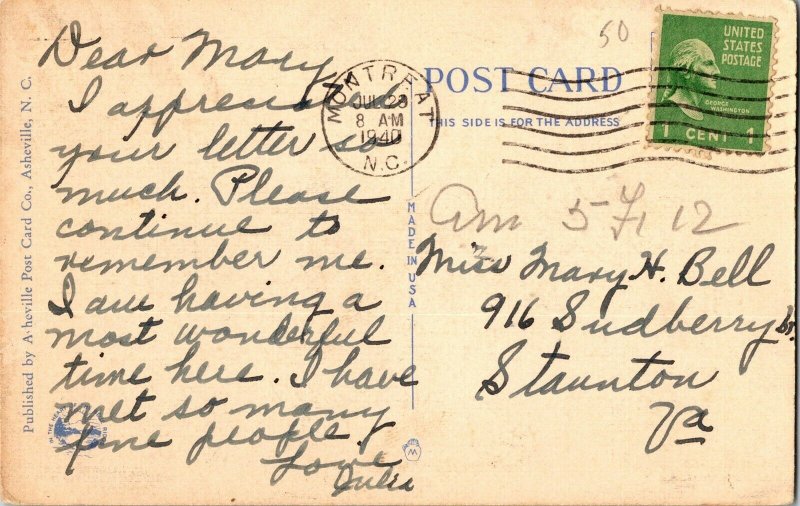 Dear Mary,
I appreciated
your letter so
much. Please
continue to
remember me.
I am having a
most wonderful
time here. I have
met so many
fine people.
Love
Julia
MONTREAT
JUL 23
8 AM
1940
N.C.
POST CARD
THIS SIDE IS FOR THE ADDRESS
50
UNITED
STATES
POSTAGE
GEORGE
WASHINGTON
1 CENT 1
Miss Mary H. Bell
916 Sudberry St.
Staunton
Va
MADE IN USA
Published by Asheville Post Card Co., Asheville, N. C.
W